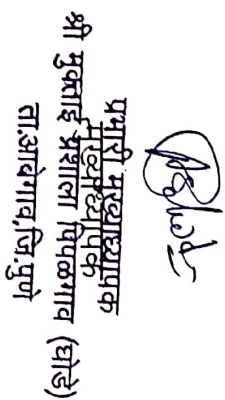 प्रभारी मुख्याध्यापक
मुख्याध्यापक
श्री मुक्ताई प्रशाला पिंपळगाव (घोडे)
ता.आंबेगाव,जि.पुणे